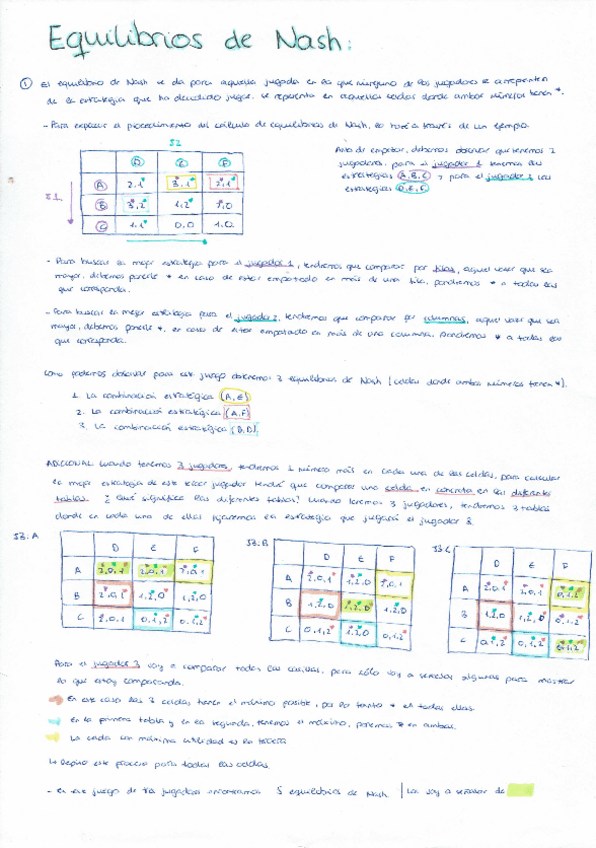 Equilibrios de Nash:
① El equilibrio de Nash se da para aquella jugada en la que ninguno de los jugadores se arrepienten
de la estrategia que ha decidido jugar. Se representa en aquellas celdas donde ambos números tienen *.
- Para explicar el procedimiento del cálculo de equilibrios de Nash, lo haré a través de un ejemplo.
J2
D E F
J1
A 2,1* 3,1* 2,1*
B 3,2* 1,2 1,0
C 1,1 0,0 1,0
Antes de empezar, debemos observar que tenemos 2
jugadores, para el jugador 1 tenemos las
estrategias (A,B,C) y para el jugador las
estrategias (D,E,F)
- Para buscar la mejor estrategia para el jugador 1, tendremos que comparar por filas, aquel valor que sea
mayor, debemos ponerle * en caso de estar empatado en más de una fila, pondremos * a todas las
que corresponda.
- Para buscar la mejor estrategia para el jugador 2, tendremos que comparar por columnas, aquel valor que sea
mayor, debemos ponerle *, en caso de estar empatado en más de una columna. Pondremos * a todas las
que corresponda.
Como podemos observar para este juego obtenemos 3 equilibrios de Nash (celdas donde ambos números tienen *).
1. La combinación estratégica (A,E)
2. La combinación estratégica (A,F)
3. La combinación estratégica (B,D)
ADICIONAL cuando tenemos 3 jugadores, tendremos 1 número más en cada una de las celdas, para calcular
la mejor estrategia de este tercer jugador tendré que comparar una celda en concreto en las diferentes
tablas. ¿Qué significa las diferentes tablas? Cuando tenemos 3 jugadores, tendremos 3 tablas
donde en cada una de ellas fijaremos la estrategia que jugará el jugador 3.
J3: A
D E F
A 2,0,1 2,0,1 2,0,1
B 2,0,1 1,2,0 1,2,0
C 2,0,1 0,1,2 0,1,2
J3: B
D E F
A 2,0,1 1,2,0 2,0,1
B 1,2,0 1,2,0 1,2,0
C 0,1,2 1,2,0 0,1,2
J3: C
D E F
A 2,0,1 2,0,1 0,1,2
B 1,2,0 1,2,0 0,1,2
C 0,1,2 0,1,2 0,1,2
Para el jugador 3 voy a comparar todas las casillas, pero sólo voy a señalar algunas para mostrar
lo que estoy comparando.
En este caso las 3 celdas tienen el máximo posible, por lo tanto * en todas ellas.
en la primera tabla y en la segunda, tenemos el máximo, ponemos * en ambas.
La celda con máxima utilidad es la tercera
↳ Repito este proceso para todas las celdas.
- en este juego de tres jugadores encontramos 5 equilibrios de Nash | Los voy a señalar de